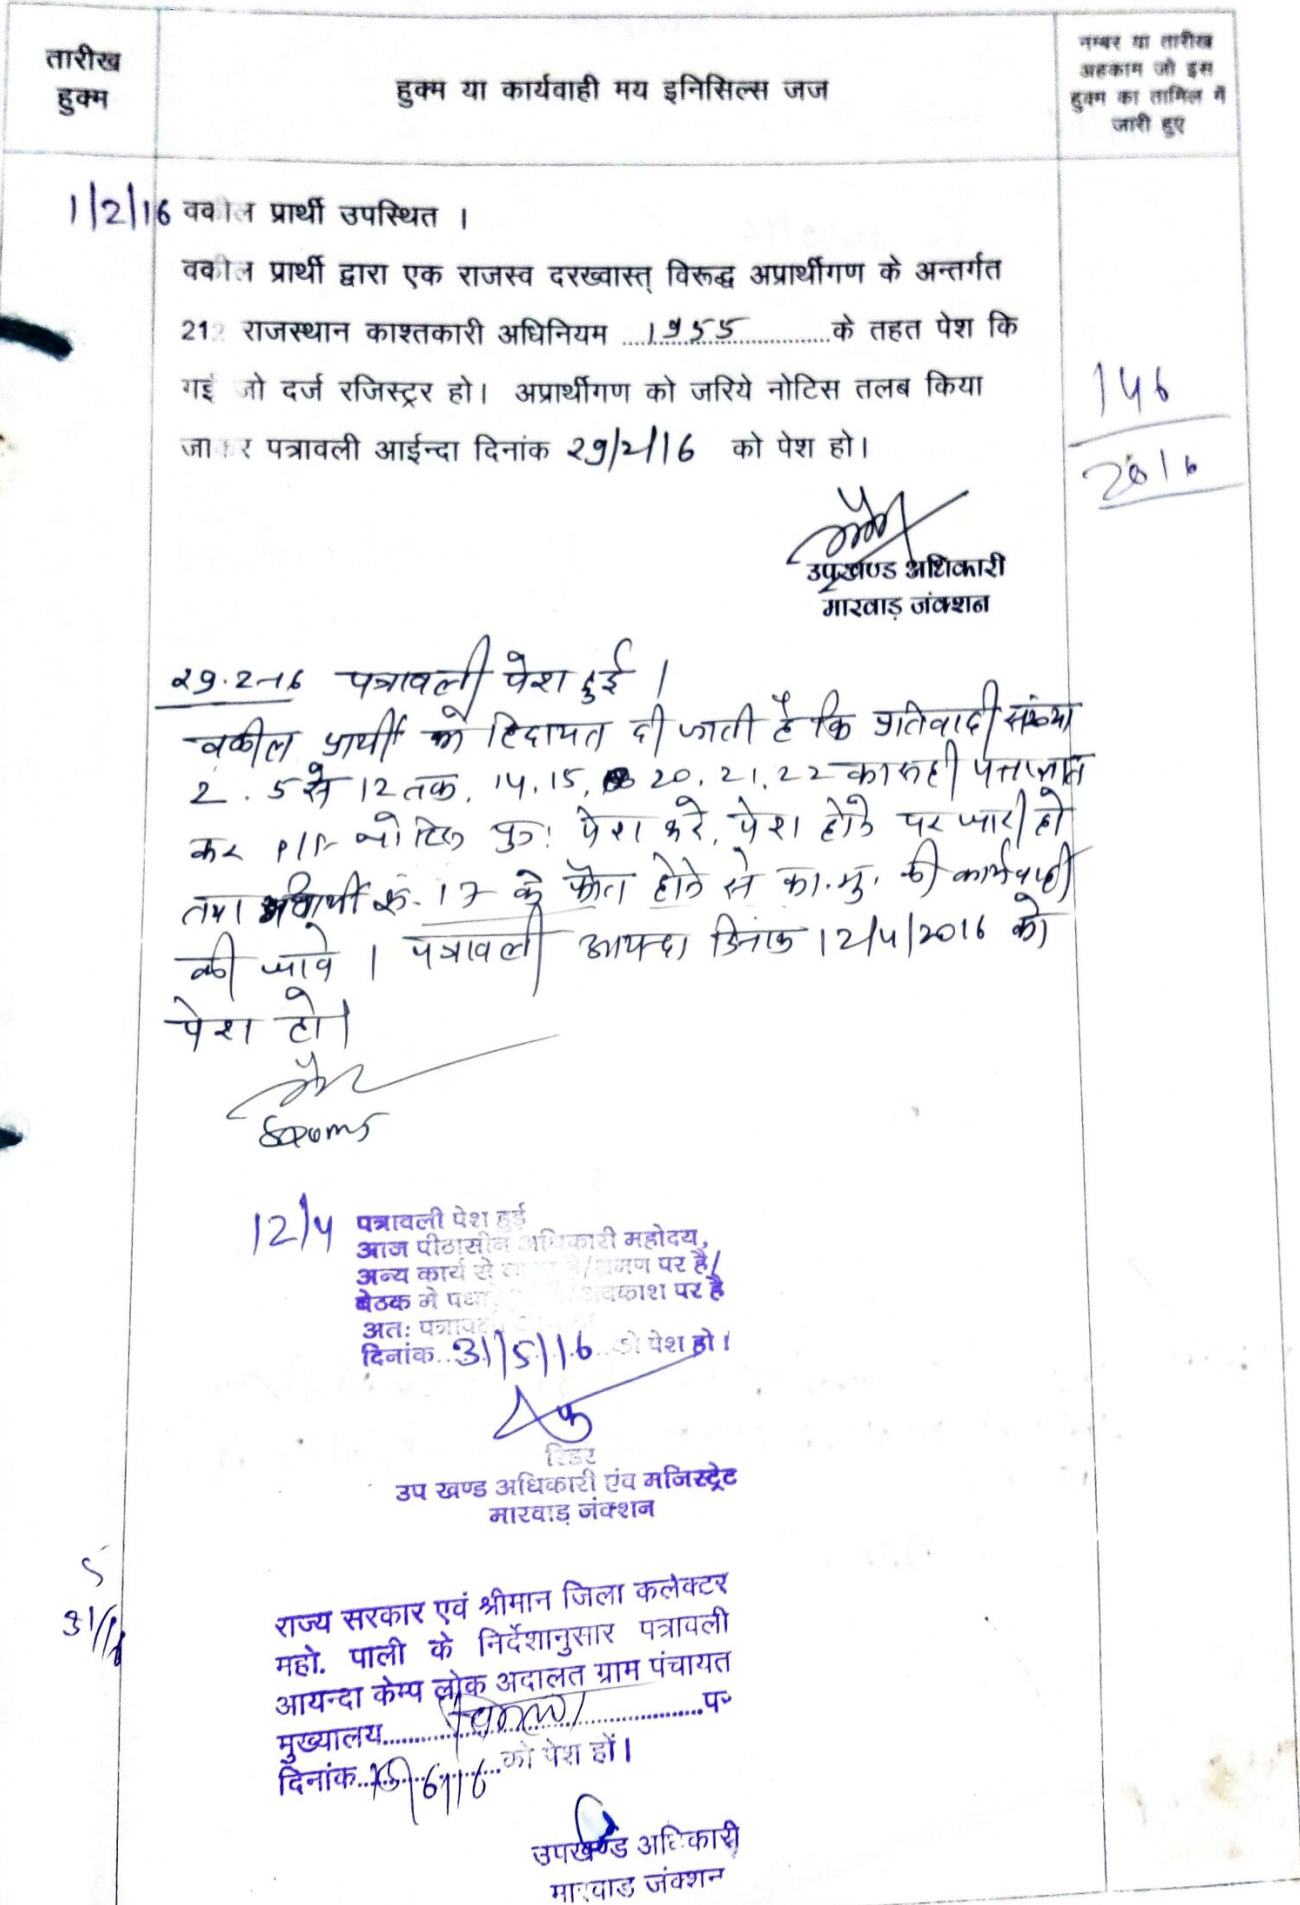 तारीख
हुक्म
हुक्म या कार्यवाही मय इनिसिल्स जज
नम्बर या तारीख
अहकाम जो इस
हुक्म का तामिल में
जारी हुए
1/2/16 वकील प्रार्थी उपस्थित ।
वकील प्रार्थी द्वारा एक राजस्व दरख्वास्त् विरूद्ध अप्रार्थीगण के अन्तर्गत
212 राजस्थान काश्तकारी अधिनियम 1955 के तहत पेश कि
गई जो दर्ज रजिस्ट्रर हो। अप्रार्थीगण को जरिये नोटिस तलब किया
जाकर पत्रावली आईन्दा दिनांक 29/2/16 को पेश हो।
146
2016
उपखण्ड अधिकारी
मारवाड़ जंक्शन
29.2.16 पत्रावली पेश हुई ।
वकील प्रार्थी को हिदायत दी जाती है कि प्रतिवादी संख्या
2. 5 से 12 तक, 14, 15, 20, 21, 22 का सही पता ज्ञात
कर नोटिस पुनः पेश करे, पेश होने पर जारी हो
तथा 17 के फौत होने से का.मु. की कार्यवाही
की जावे । पत्रावली आयन्दा दिनांक 12/4/2016 को
पेश हो।
12/4 पत्रावली पेश हुई
आज पीठासीन अधिकारी महोदय,
अन्य कार्य से है/भ्रमण पर है/
बैठक मे अवकाश पर है
अतः पत्रावली
दिनांक..31/5/16...को पेश हो।
रिडर
उप खण्ड अधिकारी एंव मजिस्ट्रेट
मारवाड़ जंक्शन
31/5/16
राज्य सरकार एवं श्रीमान जिला कलेक्टर
महो. पाली के निर्देशानुसार पत्रावली
आयन्दा केम्प लोक अदालत ग्राम पंचायत
मुख्यालय..........पर
दिनांक.....को पेश हों।
उपखण्ड अधिकारी
मारवाड जंक्शन